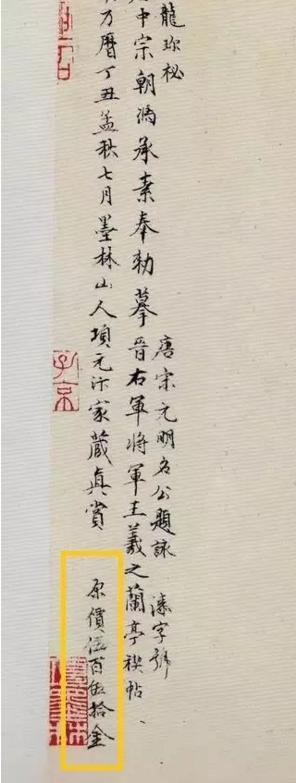 龍珎秘
唐宋元明名公題詠 漆字號
中宗朝馮承素奉勑摹晉右軍將軍王羲之蘭亭禊帖
万曆丁丑孟秋七月墨林山人項元汴家藏真賞
原價伍百伍拾金
子京